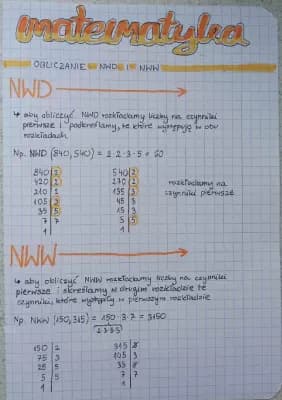 matematyka
OBLICZANIE NWD I NWW
NWD
↳ aby obliczyć NWD rozkładamy liczby na czynniki
pierwsze i podkreślamy, te które występują w obu
rozkładach.
Np. NWD (840, 540) = 2·2·3·5 = 60
840 | 2 540 | 2
420 | 2 270 | 2 rozkładamy na
210 | 2 135 | 3 czynniki pierwsze
105 | 3 45 | 3
35 | 5 15 | 3
7 | 7 5 | 5
1 | 1 |
NWW
↳ aby obliczyć NWW rozkładamy liczby na czynniki
pierwsze i skreślamy w drugim rozkładzie te
czynniki, które wystąpiły w pierwszym rozkładzie
Np. NWW (150, 315) = 150·3·7 = 3150
2·3·5·5
150 | 2 315 | 3
75 | 3 105 | 3
25 | 5 35 | 5
5 | 5 7 | 7
1 | 1 |